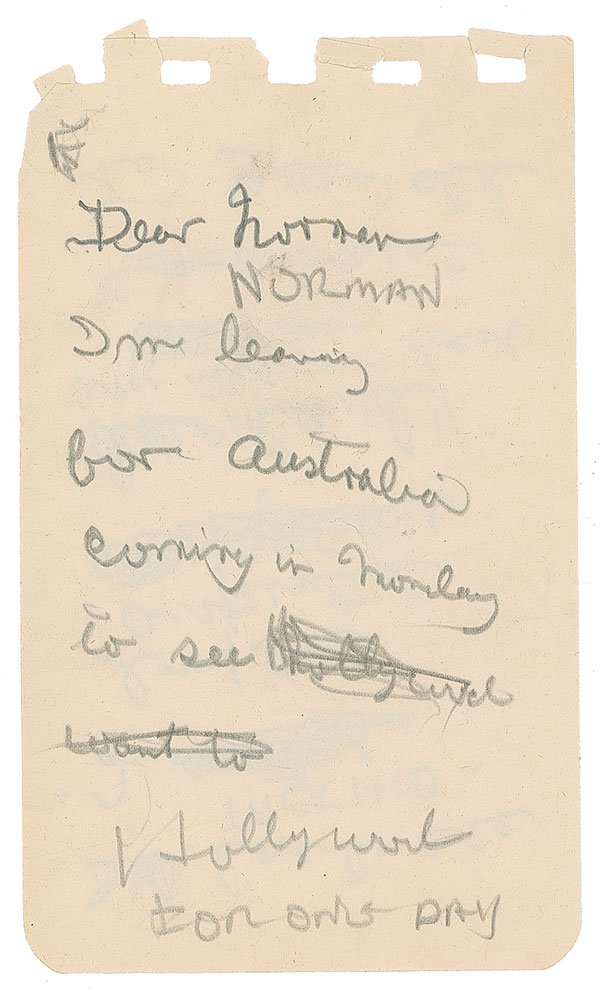 Dear Norman
NORMAN
I'm leaving
for Australia
coming in Monday
to see Hollywood
want to
Hollywood
FOR ONE DAY